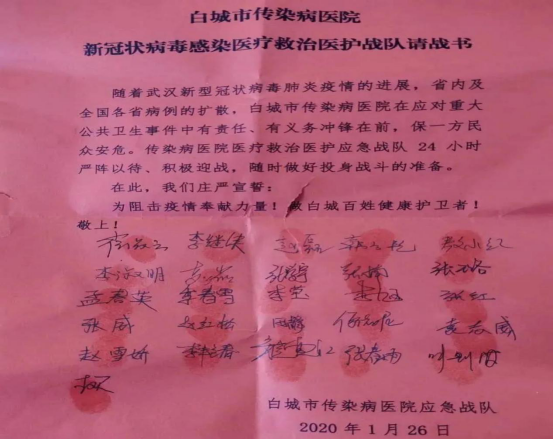 白城市传染病医院
新冠状病毒感染医疗救治医护战队请战书
随着武汉新型冠状病毒肺炎疫情的进展，省内及
全国各省病例的扩散，白城市传染病医院在应对重大
公共卫生事件中有责任、有义务冲锋在前，保一方民
众安危。传染病医院医疗救治医护应急战队 24 小时
严阵以待、积极迎战，随时做好投身战斗的准备。
在此，我们庄严宣誓：
为阻击疫情奉献力量！做白城百姓健康护卫者！
敬上！
李继侠 赵磊
孟春英 李春雪 李莹 张红
张威
赵雪娇 张春雨
白城市传染病医院应急战队
2020 年 1 月 26 日